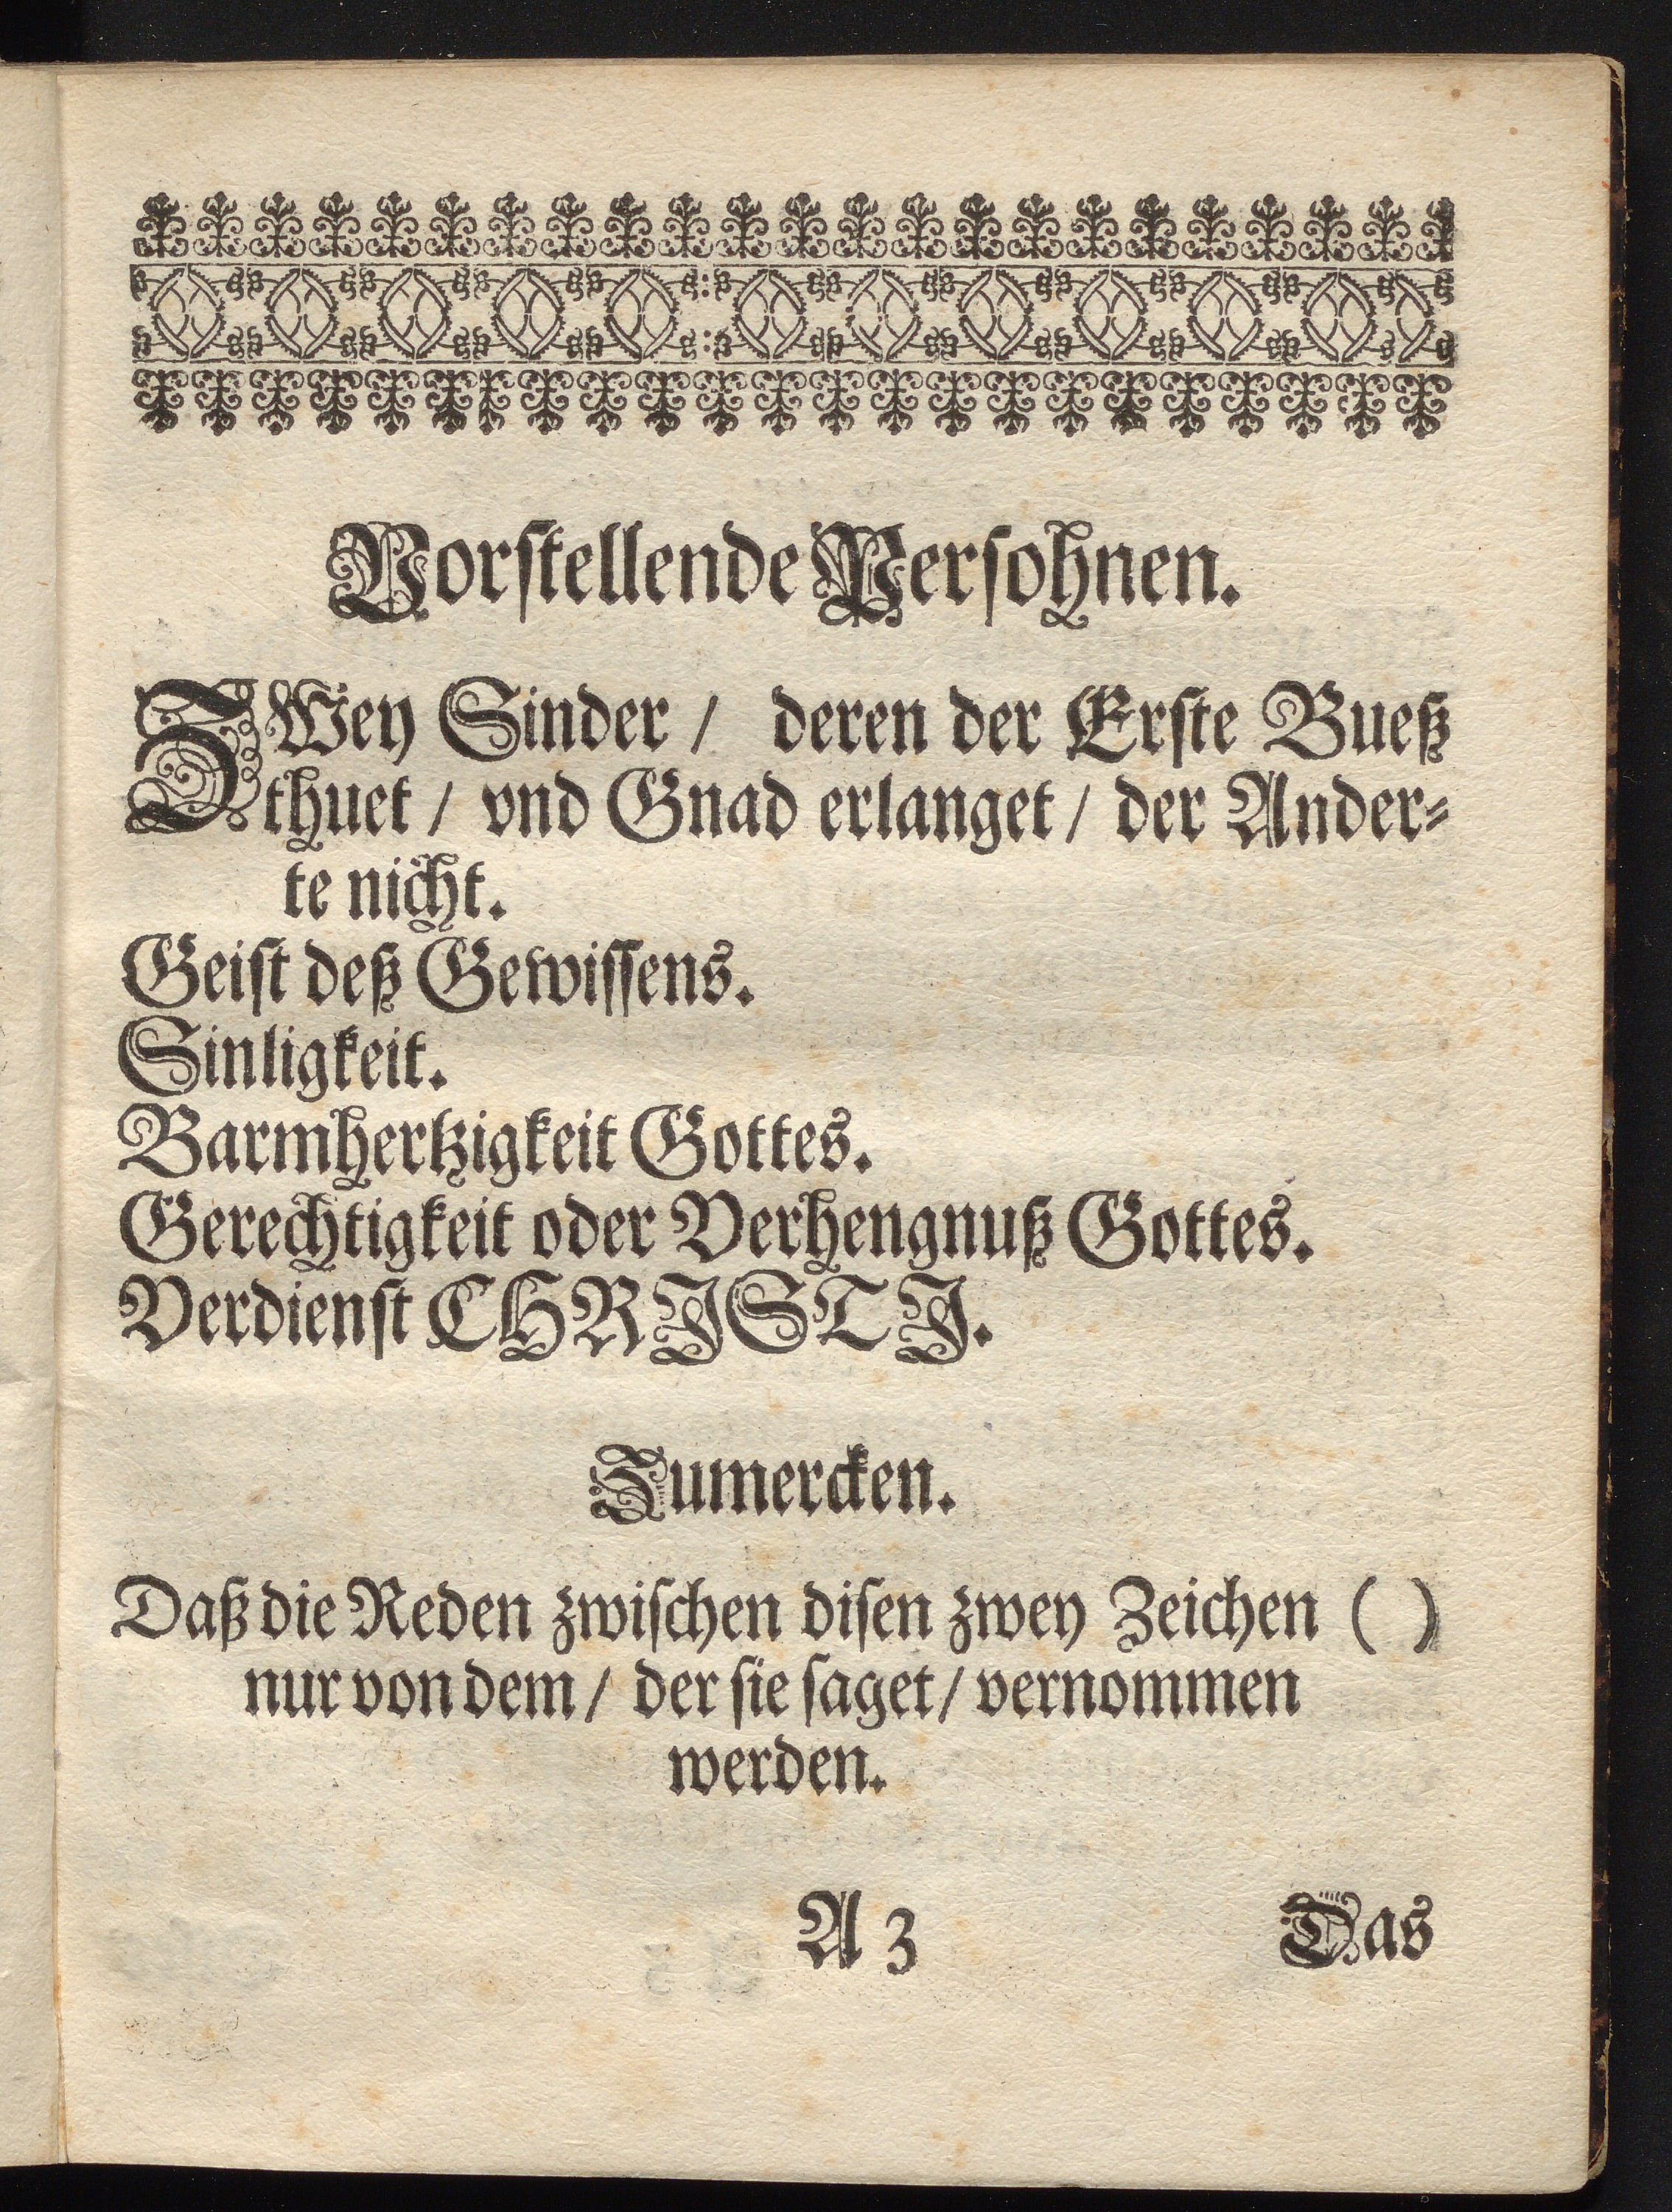 Vorstellende Persohnen.
ZWey Sinder / deren der Erste Bueß
thuet / vnd Gnad erlanget / der Ander⸗
te nicht.
Geist deß Gewissens.
Sinligkeit.
Barmhertzigkeit Gottes.
Gerechtigkeit oder Verhengnuß Gottes.
Verdienst CHRJSTJ.
Zumercken.
Daß die Reden zwischen disen zwey Zeichen ( )
nur von dem / der sie saget / vernommen
werden.
A 3 Das